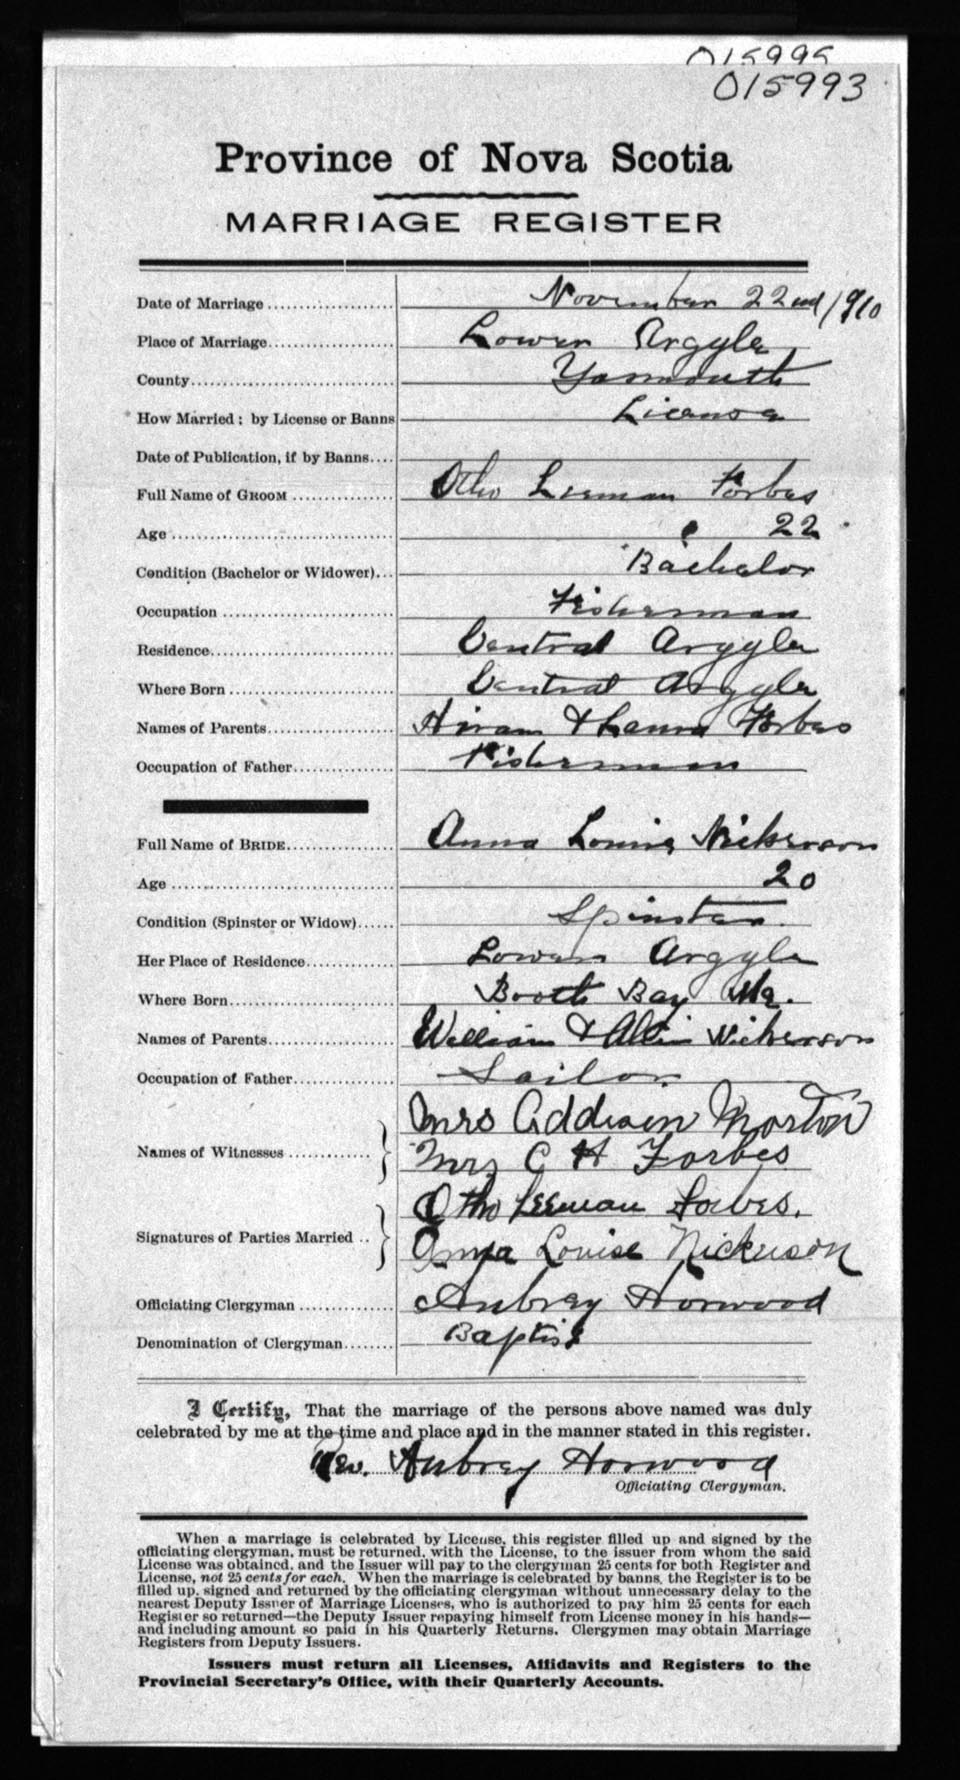 015995
015993
Province of Nova Scotia
MARRIAGE REGISTER
Date of Marriage November 22nd/910
Place of Marriage Lower Argyle
County Yarmouth
How Married; by License or Banns License
Date of Publication, if by Banns
Full Name of GROOM Otho Leeman Forbes
Age 22
Condition (Bachelor or Widower) Bachelor
Occupation Fisherman
Residence Central Argyle
Where Born Central Argyle
Names of Parents Hiram & Forbes
Occupation of Father Fisherman
Full Name of BRIDE Anna Louise Nickerson
Age 20
Condition (Spinster or Widow) Spinster
Her Place of Residence Lower Argyle
Where Born Booth Bay Me.
Names of Parents William & Nickerson
Occupation of Father Sailor
Names of Witnesses Mrs Addison Morton
Mrs C H Forbes
Signatures of Parties Married Otho Leeman Forbes.
Anna Louise Nickerson
Officiating Clergyman Aubrey Horwood
Denomination of Clergyman Baptist
I Certify, That the marriage of the persons above named was duly
celebrated by me at the time and place and in the manner stated in this register.
Rev. Aubrey Horwood
Officiating Clergyman.
When a marriage is celebrated by License, this register filled up and signed by the
officiating clergyman, must be returned, with the License, to the issuer from whom the said
License was obtained, and the Issuer will pay to the clergyman 25 cents for both Register and
License, not 25 cents for each. When the marriage is celebrated by banns, the Register is to be
filled up, signed and returned by the officiating clergyman without unnecessary delay to the
nearest Deputy Issuer of Marriage Licenses, who is authorized to pay him 25 cents for each
Register so returned—the Deputy Issuer repaying himself from License money in his hands—
and including amount so paid in his Quarterly Returns. Clergymen may obtain Marriage
Registers from Deputy Issuers.
Issuers must return all Licenses, Affidavits and Registers to the
Provincial Secretary's Office, with their Quarterly Accounts.